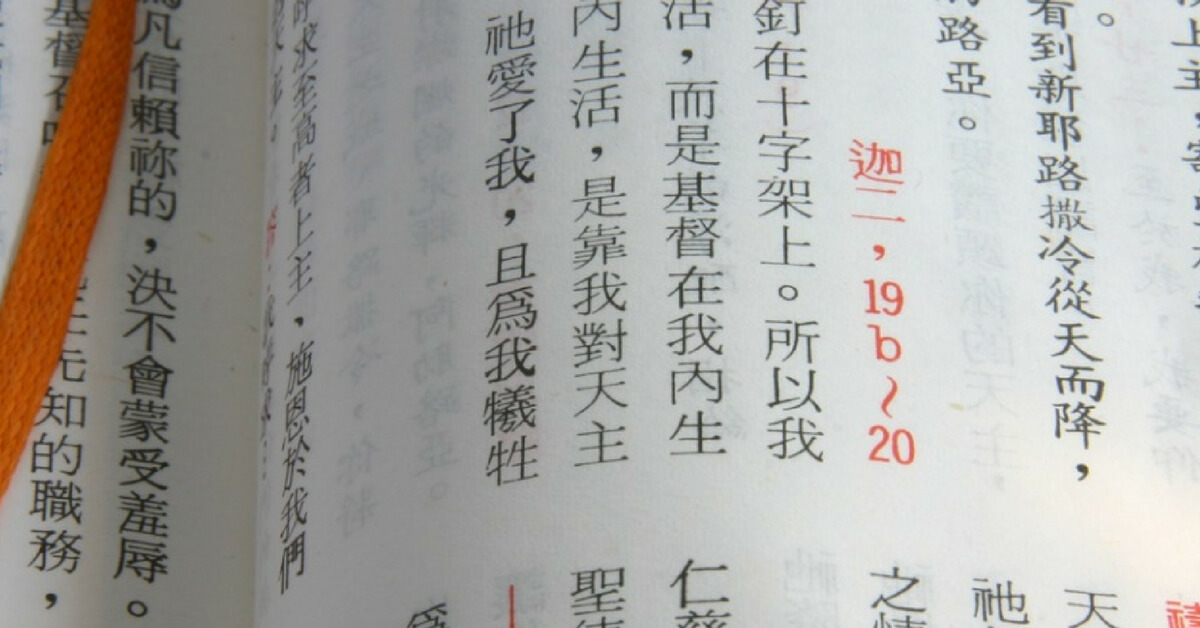 上主，
。
看到新耶路撒冷從天而降，
路亞。
迦二，19b～20
釘在十字架上。所以我
活，而是基督在我內生
內生活，是靠我對天主
祂愛了我，且爲我犧牲
天
祂
之
仁慈
聖
爲
求至高者上主，施恩於我們
凡信賴祢的，決不會蒙受羞辱。
基督
知的職務，